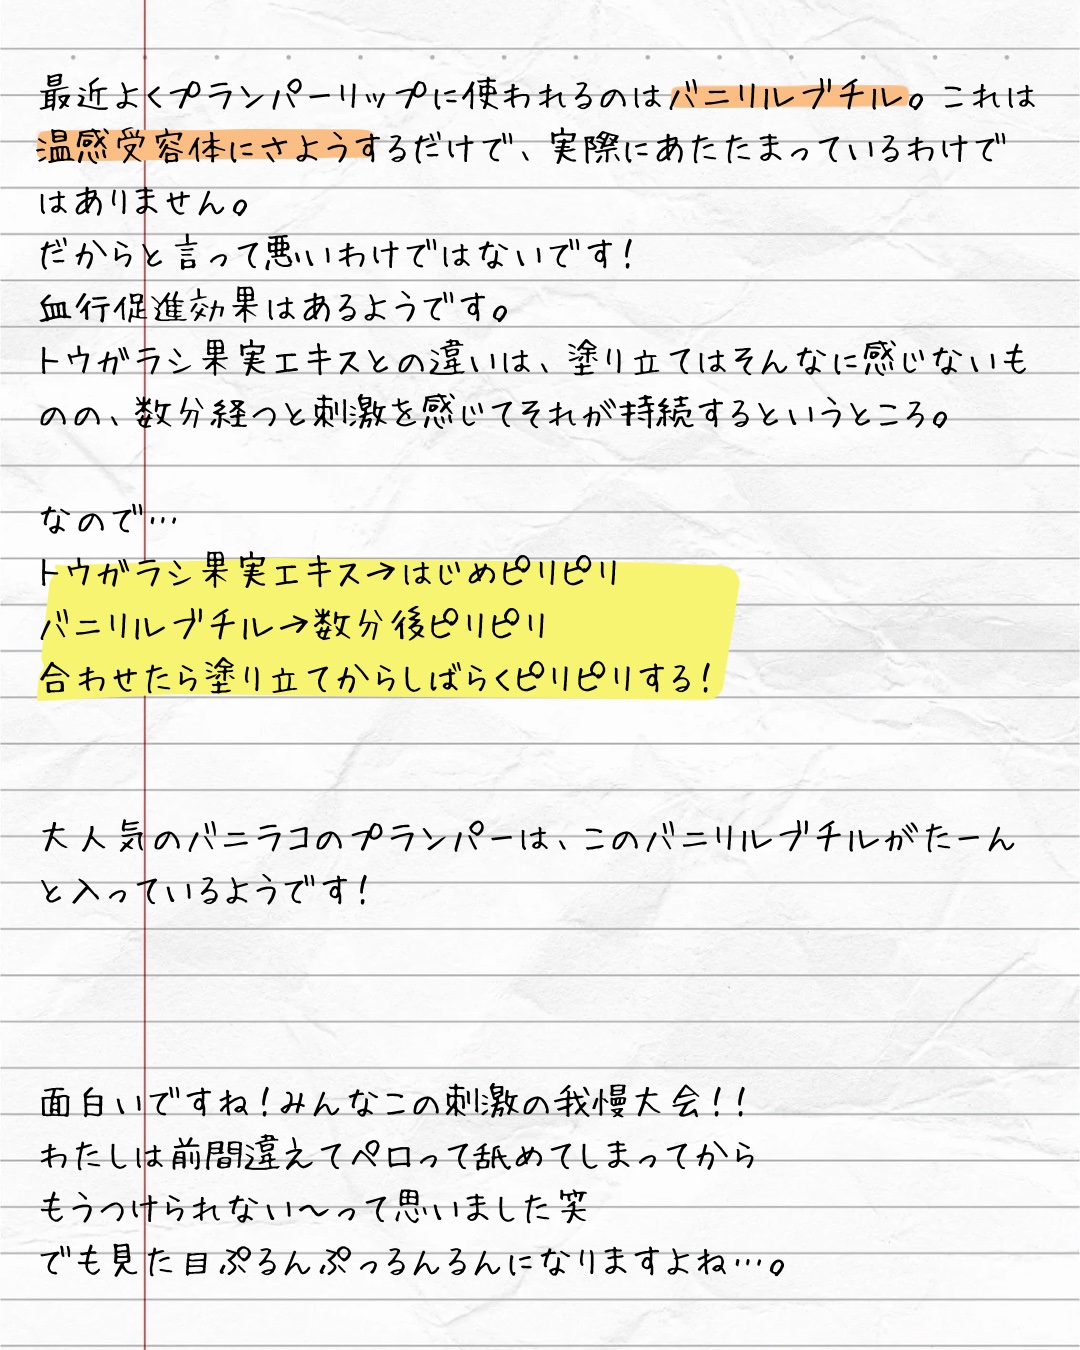 最近よくプランパーリップに使われるのはバニリルブチル。これは
温感受容体にさようするだけで、実際にあたたまっているわけで
はありません。
だからと言って悪いわけではないです！
血行促進効果はあるようです。
トウガラシ果実エキスとの違いは、塗り立てはそんなに感じないも
のの、数分経つと刺激を感じてそれが持続するというところ。
なので…
トウガラシ果実エキス→はじめピリピリ
バニリルブチル→数分後ピリピリ
合わせたら塗り立てからしばらくピリピリする！
大人気のバニラコのプランパーは、このバニリルブチルがたーん
と入っているようです！
面白いですね！みんなこの刺激の我慢大会！！
わたしは前間違えてペロって舐めてしまってから
もうつけられない〜って思いました笑
でも見た目ぷるんぷっるんるんになりますよね…。